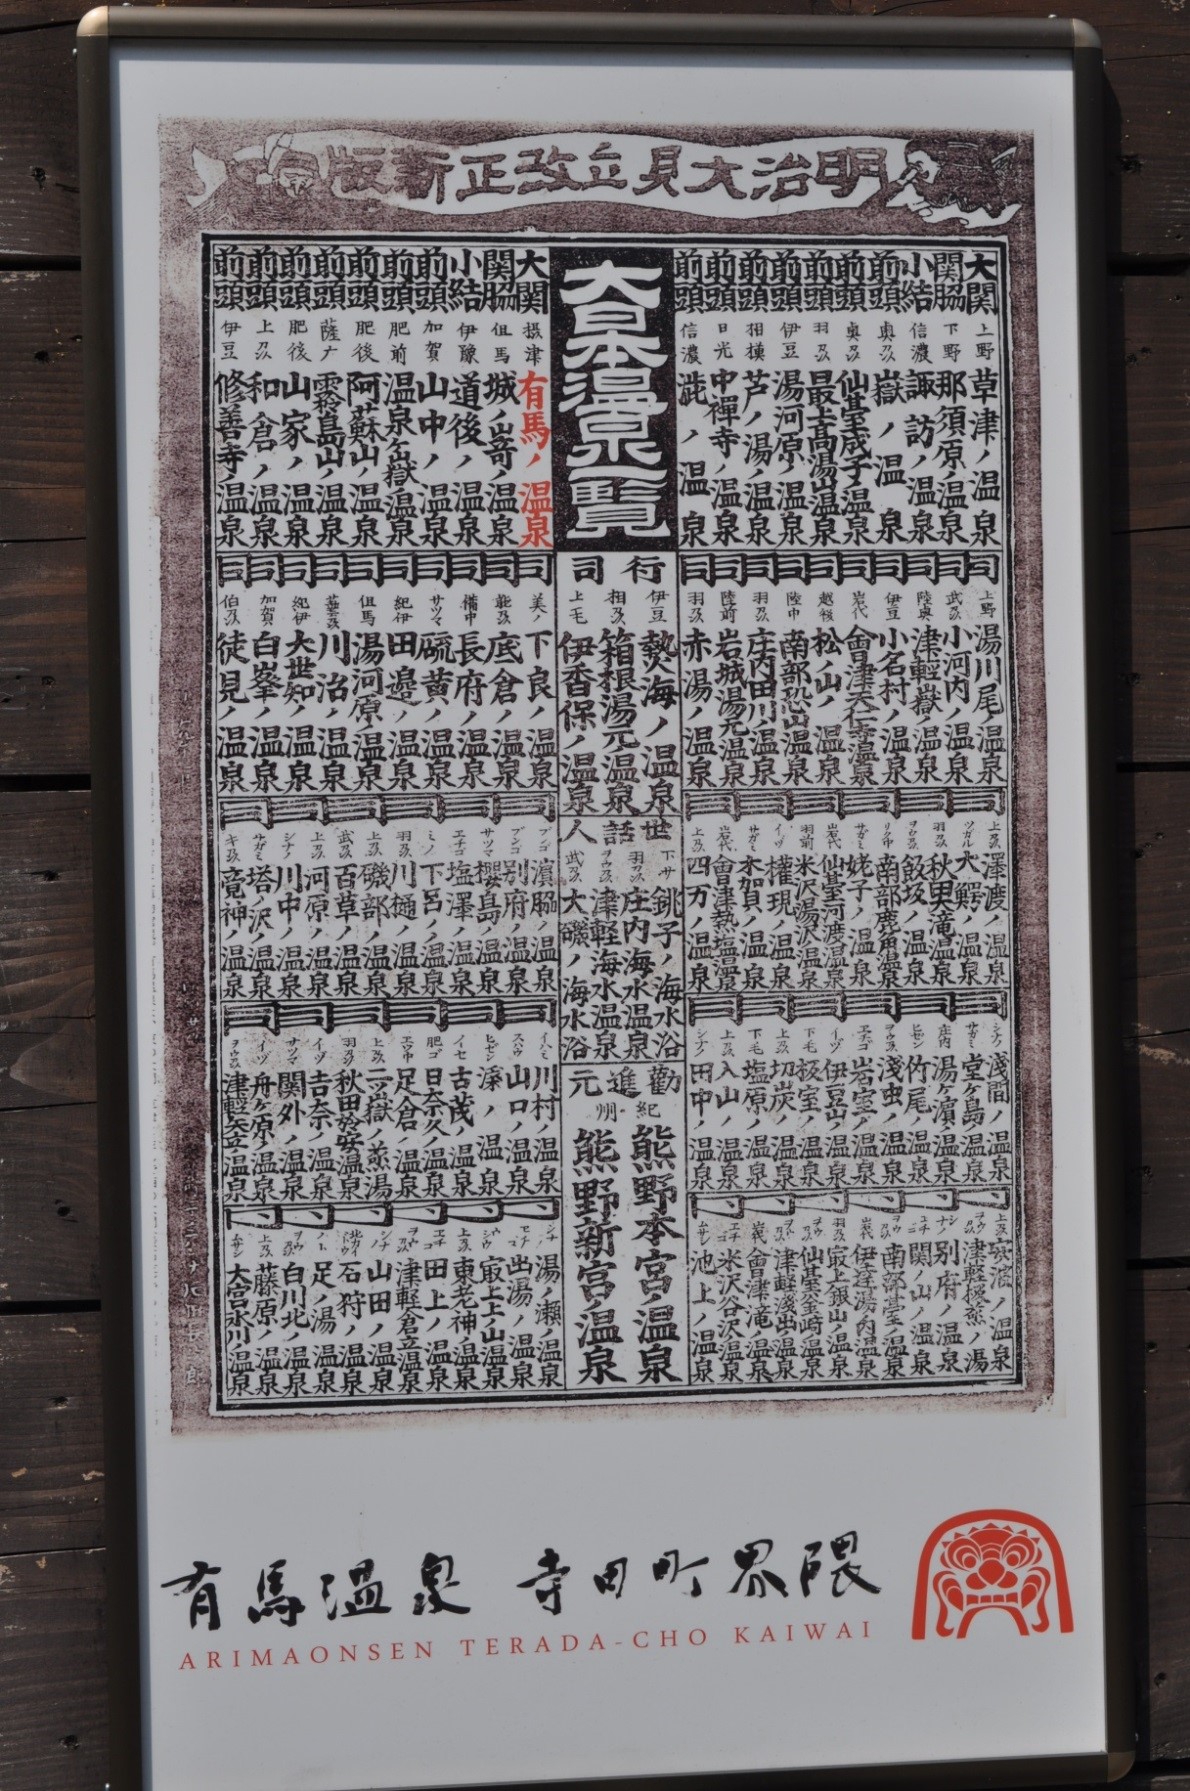 明治大見立改正新版
大日本温泉一覧
大関 上野 草津ノ温泉
関脇 下野 那須原ノ温泉
小結 信濃 諏訪ノ温泉
前頭 奥刕 嶽ノ温泉
前頭 奥刕 仙䑓成子温泉
前頭 羽刕 最上高湯温泉
前頭 伊豆 湯河原ノ温泉
前頭 相模 芦ノ湯ノ温泉
前頭 日光 中禪寺ノ温泉
前頭 信濃 渋ノ温泉
大関 摂津 有馬ノ温泉
関脇 但馬 城ノ崎ノ温泉
小結 伊豫 道後ノ温泉
前頭 加賀 山中ノ温泉
前頭 肥前 温泉ヶ嶽ノ温泉
前頭 肥後 阿蘇山ノ温泉
前頭 薩广 霧島山ノ温泉
前頭 肥後 山家ノ温泉
前頭 上刕 和倉ノ温泉
前頭 伊豆 修善寺ノ温泉
行司
伊豆 熱海ノ温泉
相刕 箱根湯元温泉
上毛 伊香保ノ温泉
同 上野 湯川尾ノ温泉
同 武刕 小河内ノ温泉
同 陸奥 津軽嶽ノ温泉
同 伊豆 小名村ノ温泉
同 岩代 會津天仁寺温泉
同 越後 松ノ山ノ温泉
同 陸中 南部恐山温泉
同 羽刕 庄内田川ノ温泉
同 陸前 岩城湯元温泉
同 羽刕 赤湯ノ温泉
同 美ノ 下良ノ温泉
同 能刕 底倉ノ温泉
同 備中 長府ノ温泉
同 サツマ 硫黄ノ温泉
同 紀伊 田邊ノ温泉
同 但馬 湯河原ノ温泉
同 川治ノ温泉
同 紀伊 大世知ノ温泉
同 加賀 白峯ノ温泉
同 伯刕 徒見ノ温泉
世話人
下サ 銚子ノ海水浴
羽刕 庄内海水温泉
ヲウ刕 津軽海水温泉
武刕 大磯ノ海水浴
同 上刕 澤渡ノ温泉
同 ツガル 大鰐ノ温泉
同 羽刕 秋田滝温泉
同 ヲウ刕 飯坂ノ温泉
同 リク中 南部鹿角温泉
同 サガミ 姥子ノ温泉
同 岩代 仙䑓河渡温泉
同 羽前 米沢湯沢温泉
同 イヅ 權現ノ温泉
同 サガミ 木賀ノ温泉
同 岩代 會津熱塩温泉
同 上刕 四万ノ温泉
同 ブンゴ 濵脇ノ温泉
同 ブンゴ 別府ノ温泉
同 サツマ 櫻島ノ温泉
同 エチゴ 塩澤ノ温泉
同 ミノ 下呂ノ温泉
同 羽刕 川樋ノ温泉
同 上刕 磯部ノ温泉
同 武刕 百草ノ温泉
同 上刕 河原ノ温泉
同 シナノ 川中ノ温泉
同 サガミ 塔ノ沢ノ温泉
同 竜神ノ温泉
勧進元
紀州
熊野本宮ノ温泉
熊野新宮ノ温泉
同 シナノ 淺間ノ温泉
同 サガミ 堂ヶ島ノ温泉
同 庄内 湯ヶ濵ノ温泉
同 ヒゼン 竹尾ノ温泉
同 ヲウ刕 淺虫ノ温泉
同 エチゴ 岩室ノ温泉
同 イヅ 伊豆山ノ温泉
同 下毛 板室ノ温泉
同 上刕 切炭ノ温泉
同 下毛 塩原ノ温泉
同 上刕 入山ノ温泉
同 シナノ 田中ノ温泉
同 川村ノ温泉
同 スハウ 山口ノ温泉
同 ヒゼン 温泉
同 イセ 古茂ノ温泉
同 肥ゴ 日奈久ノ温泉
同 エツ中 足倉ノ温泉
同 上刕 二ッ嶽ノ蒸湯
同 羽刕 秋田於安温泉
同 イヅ 吉奈ノ温泉
同 サツマ 関外ノ温泉
同 イヅ 舟ヶ原ノ温泉
同 ヲウ刕 津軽矢立ノ温泉
津軽板蒸ノ湯
別府ノ温泉
関ノ山ノ温泉
南部䑓ノ温泉
伊達湯ノ内温泉
羽刕 最上銀山ノ温泉
仙䑓釜崎ノ温泉
津軽淺出温泉
岩代 會津滝ノ温泉
米沢谷沢ノ温泉
ムサシ 池上ノ温泉
湯ノ瀬ノ温泉
出湯ノ温泉
最上上ノ山温泉
上刕 東老神ノ温泉
エチゴ 田上ノ温泉
ヲウ刕 津軽倉立温泉
シナノ 山田ノ温泉
石狩ノ温泉
ノト 足ノ湯温泉
白川北ノ温泉
上刕 藤原ノ温泉
ムサシ 大宮氷川ノ温泉
有馬温泉 寺田町界隈
ARIMAONSEN TERADA-CHO KAIWAI